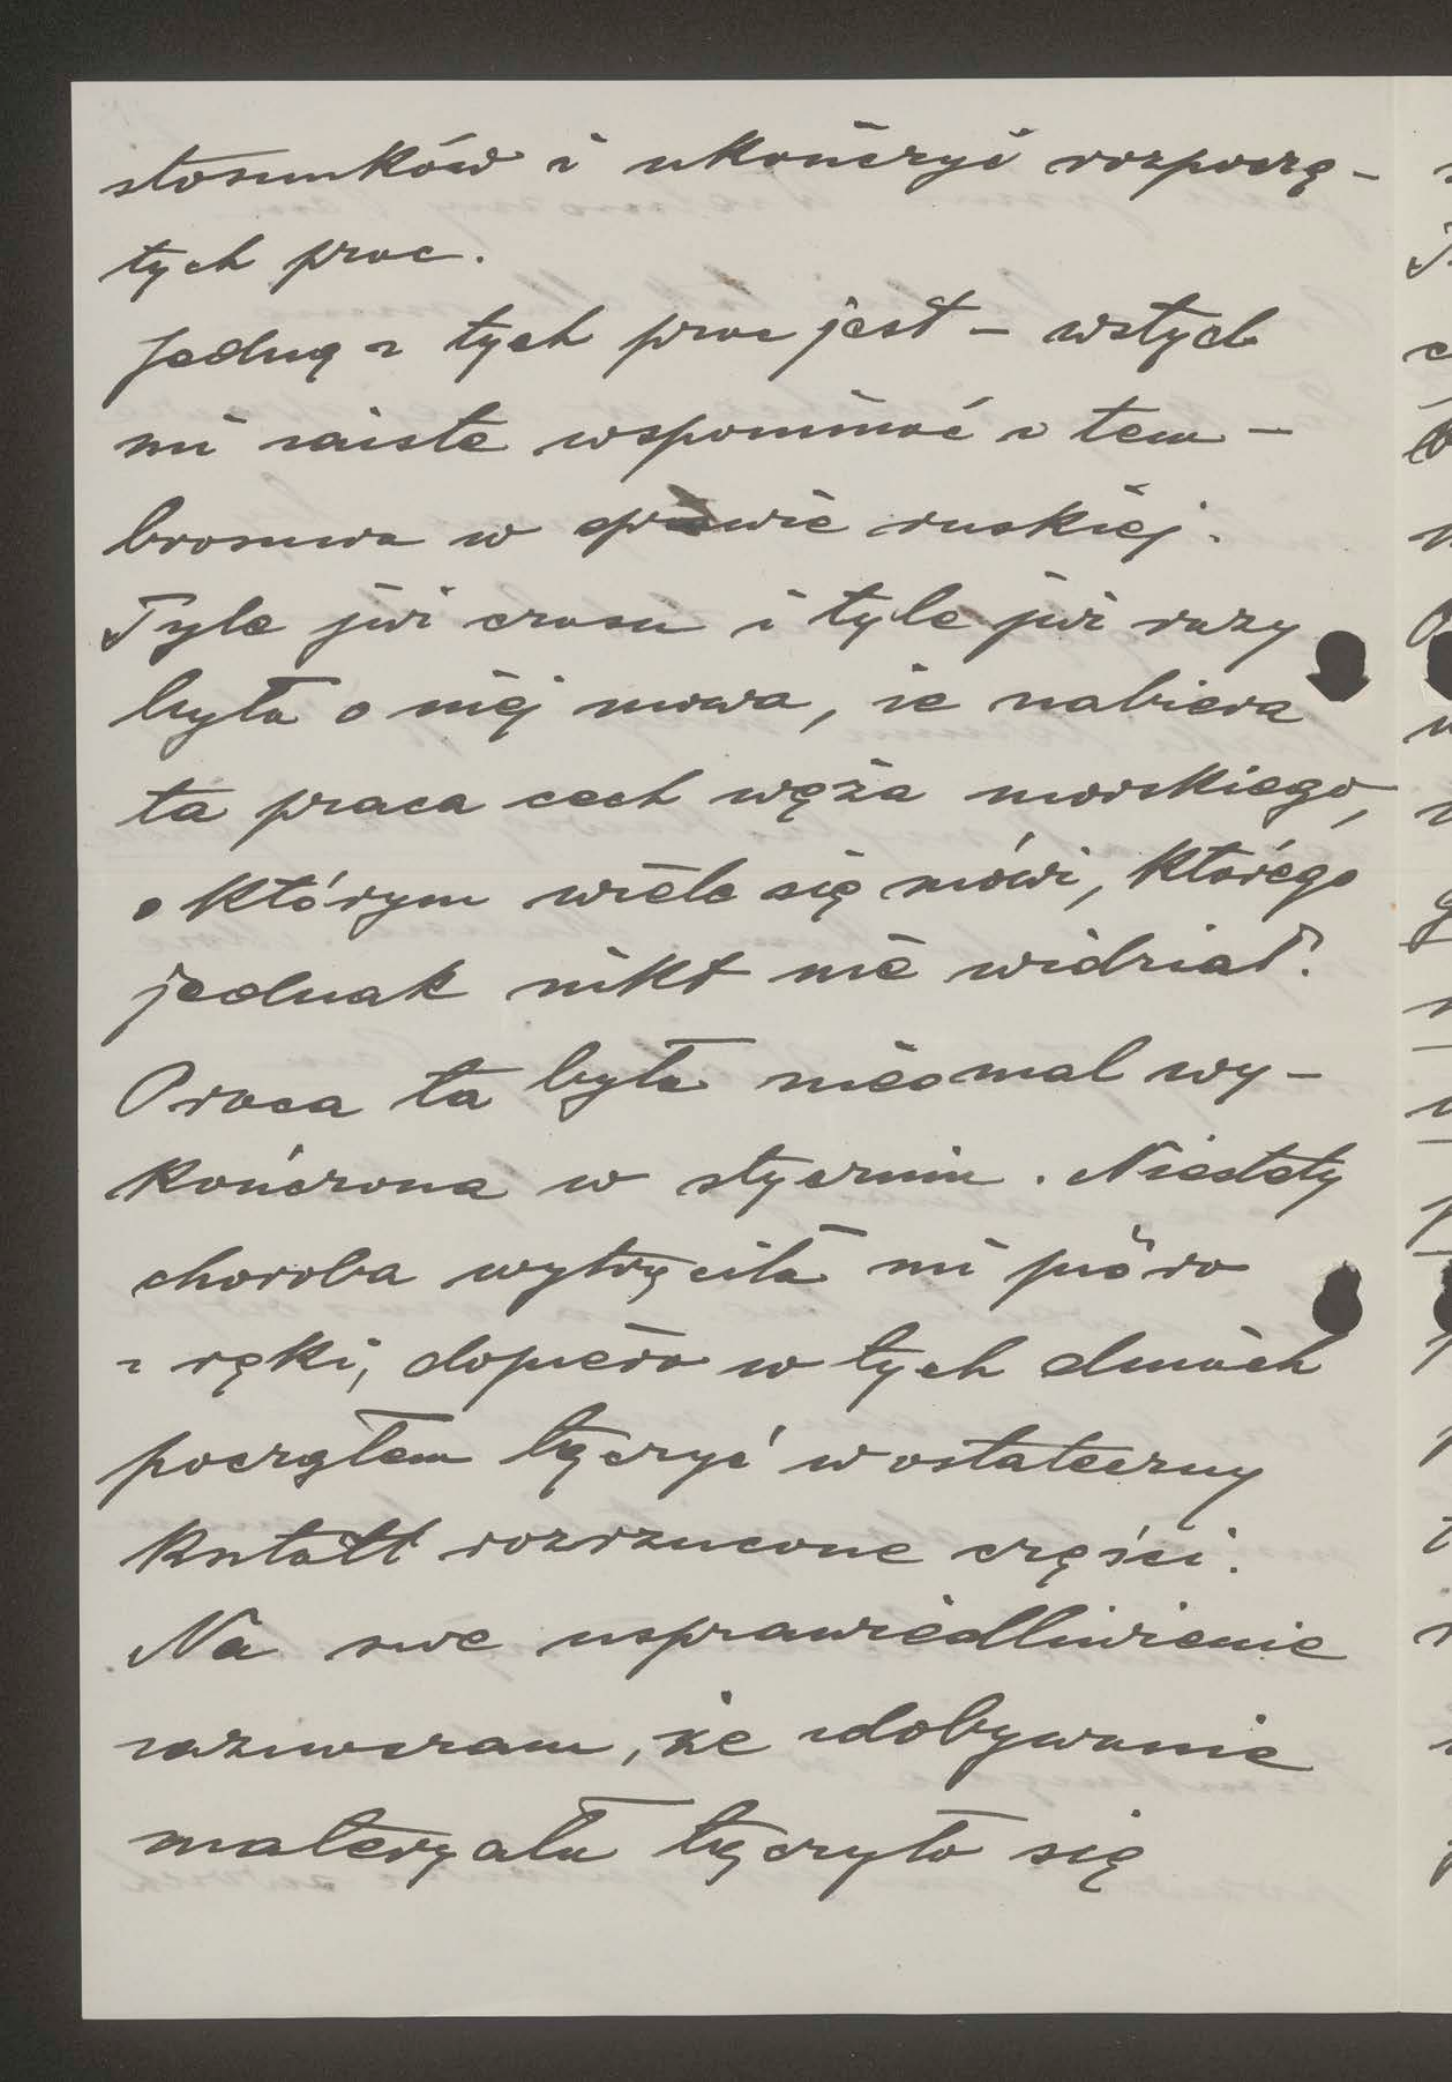 stosunków i ukończyć rozpoczę-
tych prac.
Jedną z tych prac jest – wstyd
mi zaiste wspominać o tem –
broszura w sprawie ruskiej.
Tyle już czasu i tyle już razy
była o niej mowa, że nabiera
ta praca cech węża morskiego,
o którym wiele się mówi, którego
jednak nikt nie widział.
Praca ta była nieomal wy-
kończona w styczniu. Niestety
choroba wytrąciła mi pióro
z ręki, dopiero w tych dniach
począłem łączyć w ostateczny
kształt rozrzucone części.
Na swe usprawiedliwienie
zaznaczam, że zdobywanie
materyału łączyło się